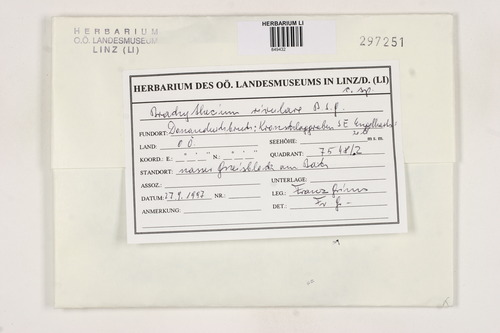 HERBARIUM
O.Ö. LANDESMUSEUM
LINZ (LI)
HERBARIUM LI
297251
HERBARIUM DES OÖ. LANDESMUSEUMS IN LINZ/D. (LI)
c. sp.
Brachythecium rivulare B.S.G.
FUNDORT: SE
LAND: OÖ SEEHÖHE: m s.m.
KOORD.: E: ° ' " N: ° ' " QUADRANT: 7548/2
STANDORT: nasser am Bach
ASSOZ.: UNTERLAGE:
DATUM: 17.9.1997 NR.: LEG.: Franz Grims
ANMERKUNG: DET.: Fr G.